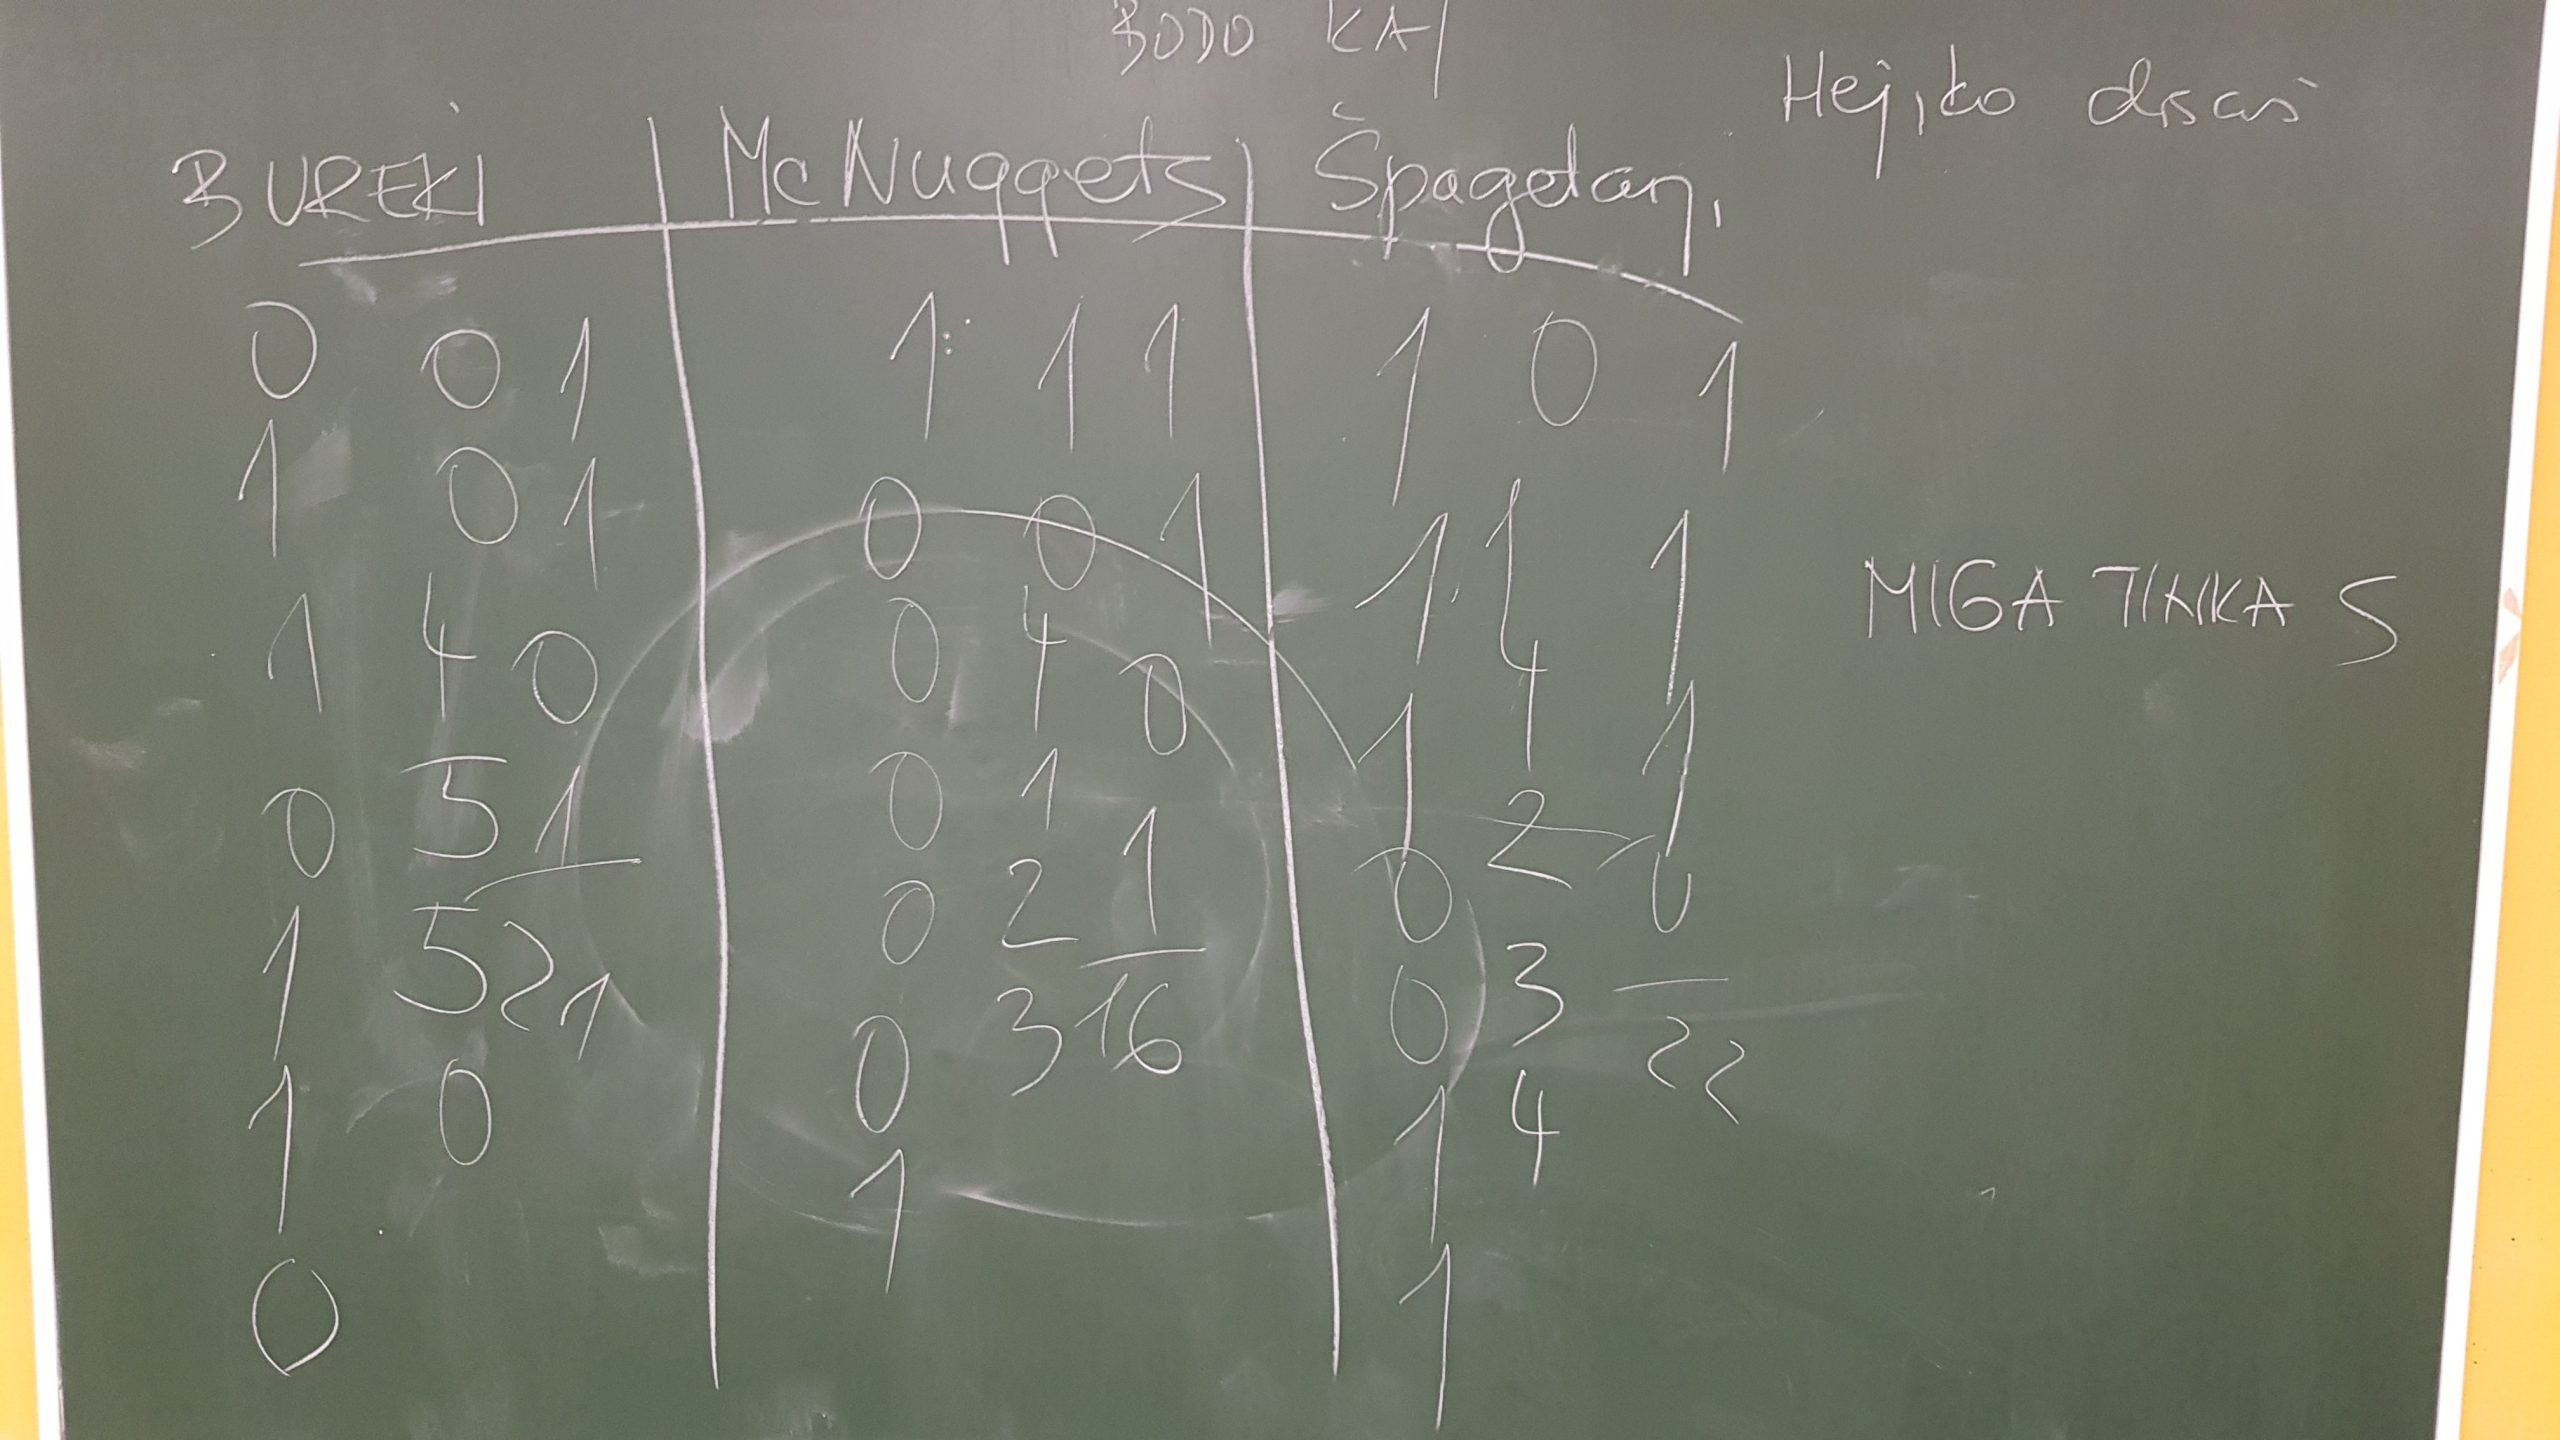 BODO KAJ
Hej, ko disaš
BUREKI McNuggets Špagetarji
0 0 1 1 1 1 1 0 1
1 0 1 0 0 1 1 1 1
1 4 0 0 4 0 1 4 1
0 5 1 0 1 1 0 2 0
1 5 21 0 2 16 0 3 22
1 0 0 3 1 4
0 1 1
MIGATINKA S